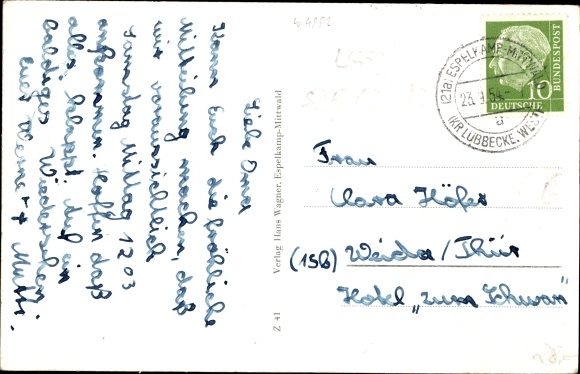 Liebe Oma
Kann Euch die fröhliche
Mitteilung machen, daß
wir voraussichtlich
Samstag Mittag 12 03
ankommen. Hoffen daß
alles klappt. Auf ein
baldiges Wiedersehen.
Eure Werner + Mutti.
Verlag Hans Wagner, Espelkamp-Mittwald
Z 41
(21a) ESPELKAMP-MITTWALD
23.9.54.-
a
(KR LÜBBECKE, WESTF
10
DEUTSCHE
BUNDESPOST
Frau
Clara Höfer
(15b) Weida/Thür
Hotel „zum Schwan"